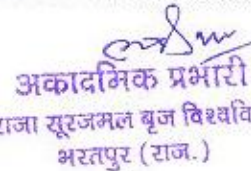 अकादमिक प्रभारी
राजा सूरजमल बृज विश्ववि
भरतपुर (राज.)